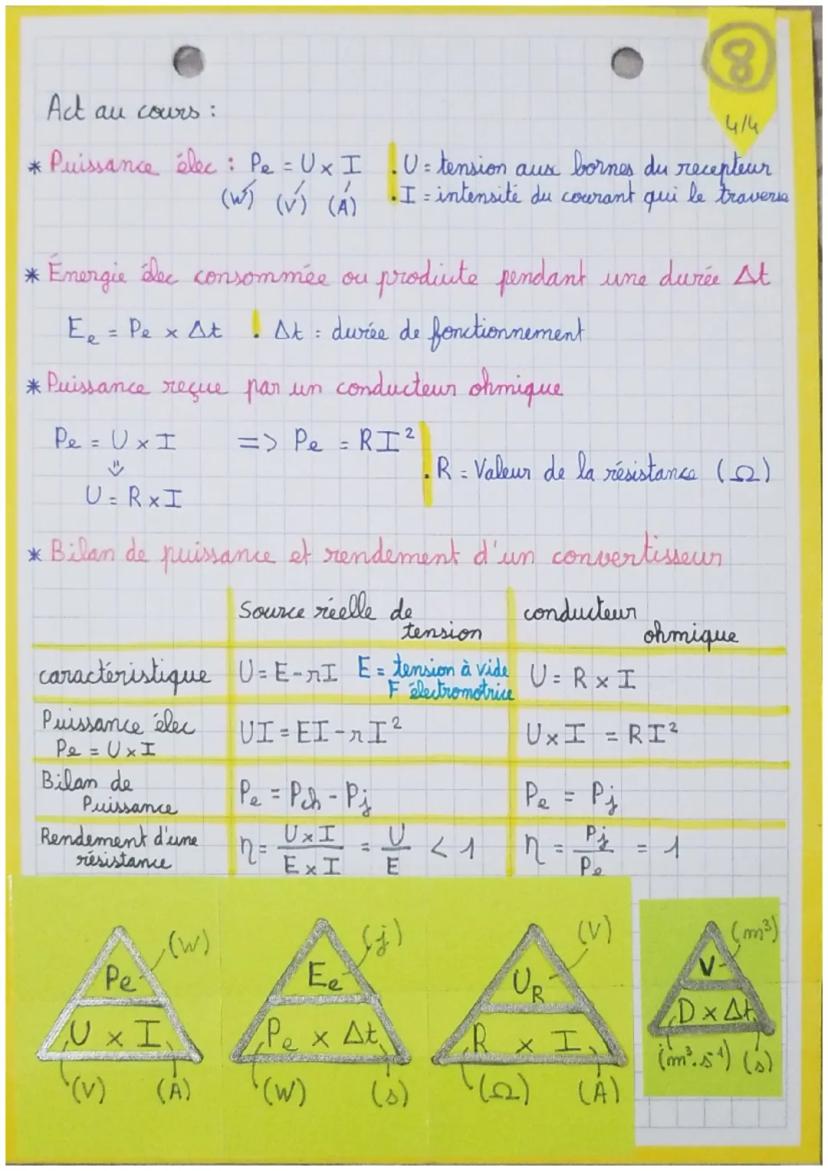 8
4/4
Act au cours :
* Puissance élec : Pe = U x I . U = tension aux bornes du recepteur
(W) (V) (A) . I = intensité du courant qui le traverse
* Énergie élec consommée ou produite pendant une durée Δt
Ee = Pe x Δt . Δt : durée de fonctionnement
* Puissance reçue par un conducteur ohmique
Pe = U x I => Pe = RI²
. R = Valeur de la résistance (Ω)
U = R x I
* Bilan de puissance et rendement d'un convertisseur
Source réelle de tension
conducteur ohmique
caractéristique U = E - rI E = tension à vide U = R x I
F électromotrice
Puissance élec UI = EI - rI² U x I = RI²
Pe = U x I
Bilan de Puissance Pe = Pch - Pj Pe = Pj
Rendement d'une résistance η = U x I / E x I = U / E < 1 η = Pj / Pe = 1
Pe (W)
U x I
(V) (A)
Ee (j)
Pe x Δt
(W) (s)
UR (V)
R x I
(Ω) (A)
V (m³)
D x Δt
(m³.s⁻¹) (s)